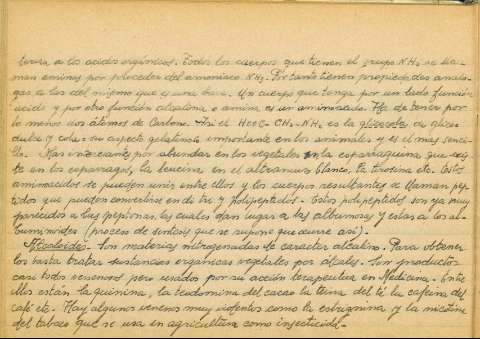 teriza a los acidos orgánicos. Todos los cuerpos que tienen el grupo NH2 se lla-
man aminas por proceder del amoniaco NH3. Por tanto tienen propiedades analo-
gas a las del mismo que es una base. Un cuerpo que tenga por un lado función
acido y por otro función alcalina o amina es un aminoacido. Ha de tener por
lo menos dos átomos de Carbono. Asi el HOOC-CH2-NH2 es la glicocola de glico=
dulce y cola= su aspecto gelatinoso importante en los animales y es el mas senci-
llo. Mas interesante por abundar en los vegetales la esparraguina que exis-
te en los esparragos, la leucina en el altramuz blanco, la tirosina etc. Estos
aminoacidos se pueden unir entre ellos y los cuerpos resultantes se llaman pep-
tidos que pueden convertirse en di tri y polipeptidos. Estos polipeptidos son ya muy
parecidos a las peptonas las cuales dan lugar a las albumosas y estas a los al-
buminoides (proceso de sintesis que se supone que ocurre asi).
Alcaloides- Son materias nitrogenadas de caracter alcalino. Para obtener
los basta tratar sustancias orgánicas vegetales por álcalis. Son productos
casi todos venenosos pero usados por su acción terapeutica en Medicina. Entre
ellos están la quinina, la teobromina del cacao la teina del té la cafeina del
café etc. Hay algunos venenos muy violentos como la estrignina y la nicotina
del tabaco que se usa en agricultura como insecticida.-